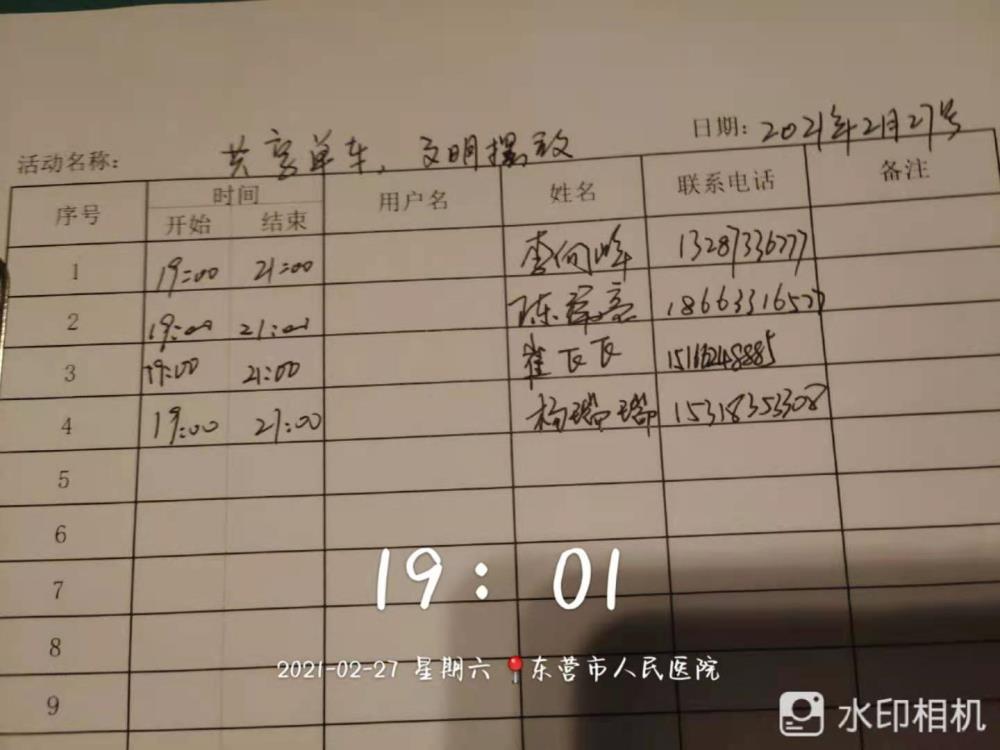 日期: 2021年2月27号
活动名称: 共享单车,文明摆放
序号 时间 用户名 姓名 联系电话 备注
开始 结束
1 19:00 21:00 李向峰 13287336277
2 19:00 21:00 陈 18663316527
3 19:00 21:00 崔 15166248885
4 19:00 21:00 杨瑞瑞 15318353308
5
6
7
8
9
19:01
2021-02-27 星期六 东营市人民医院
水印相机